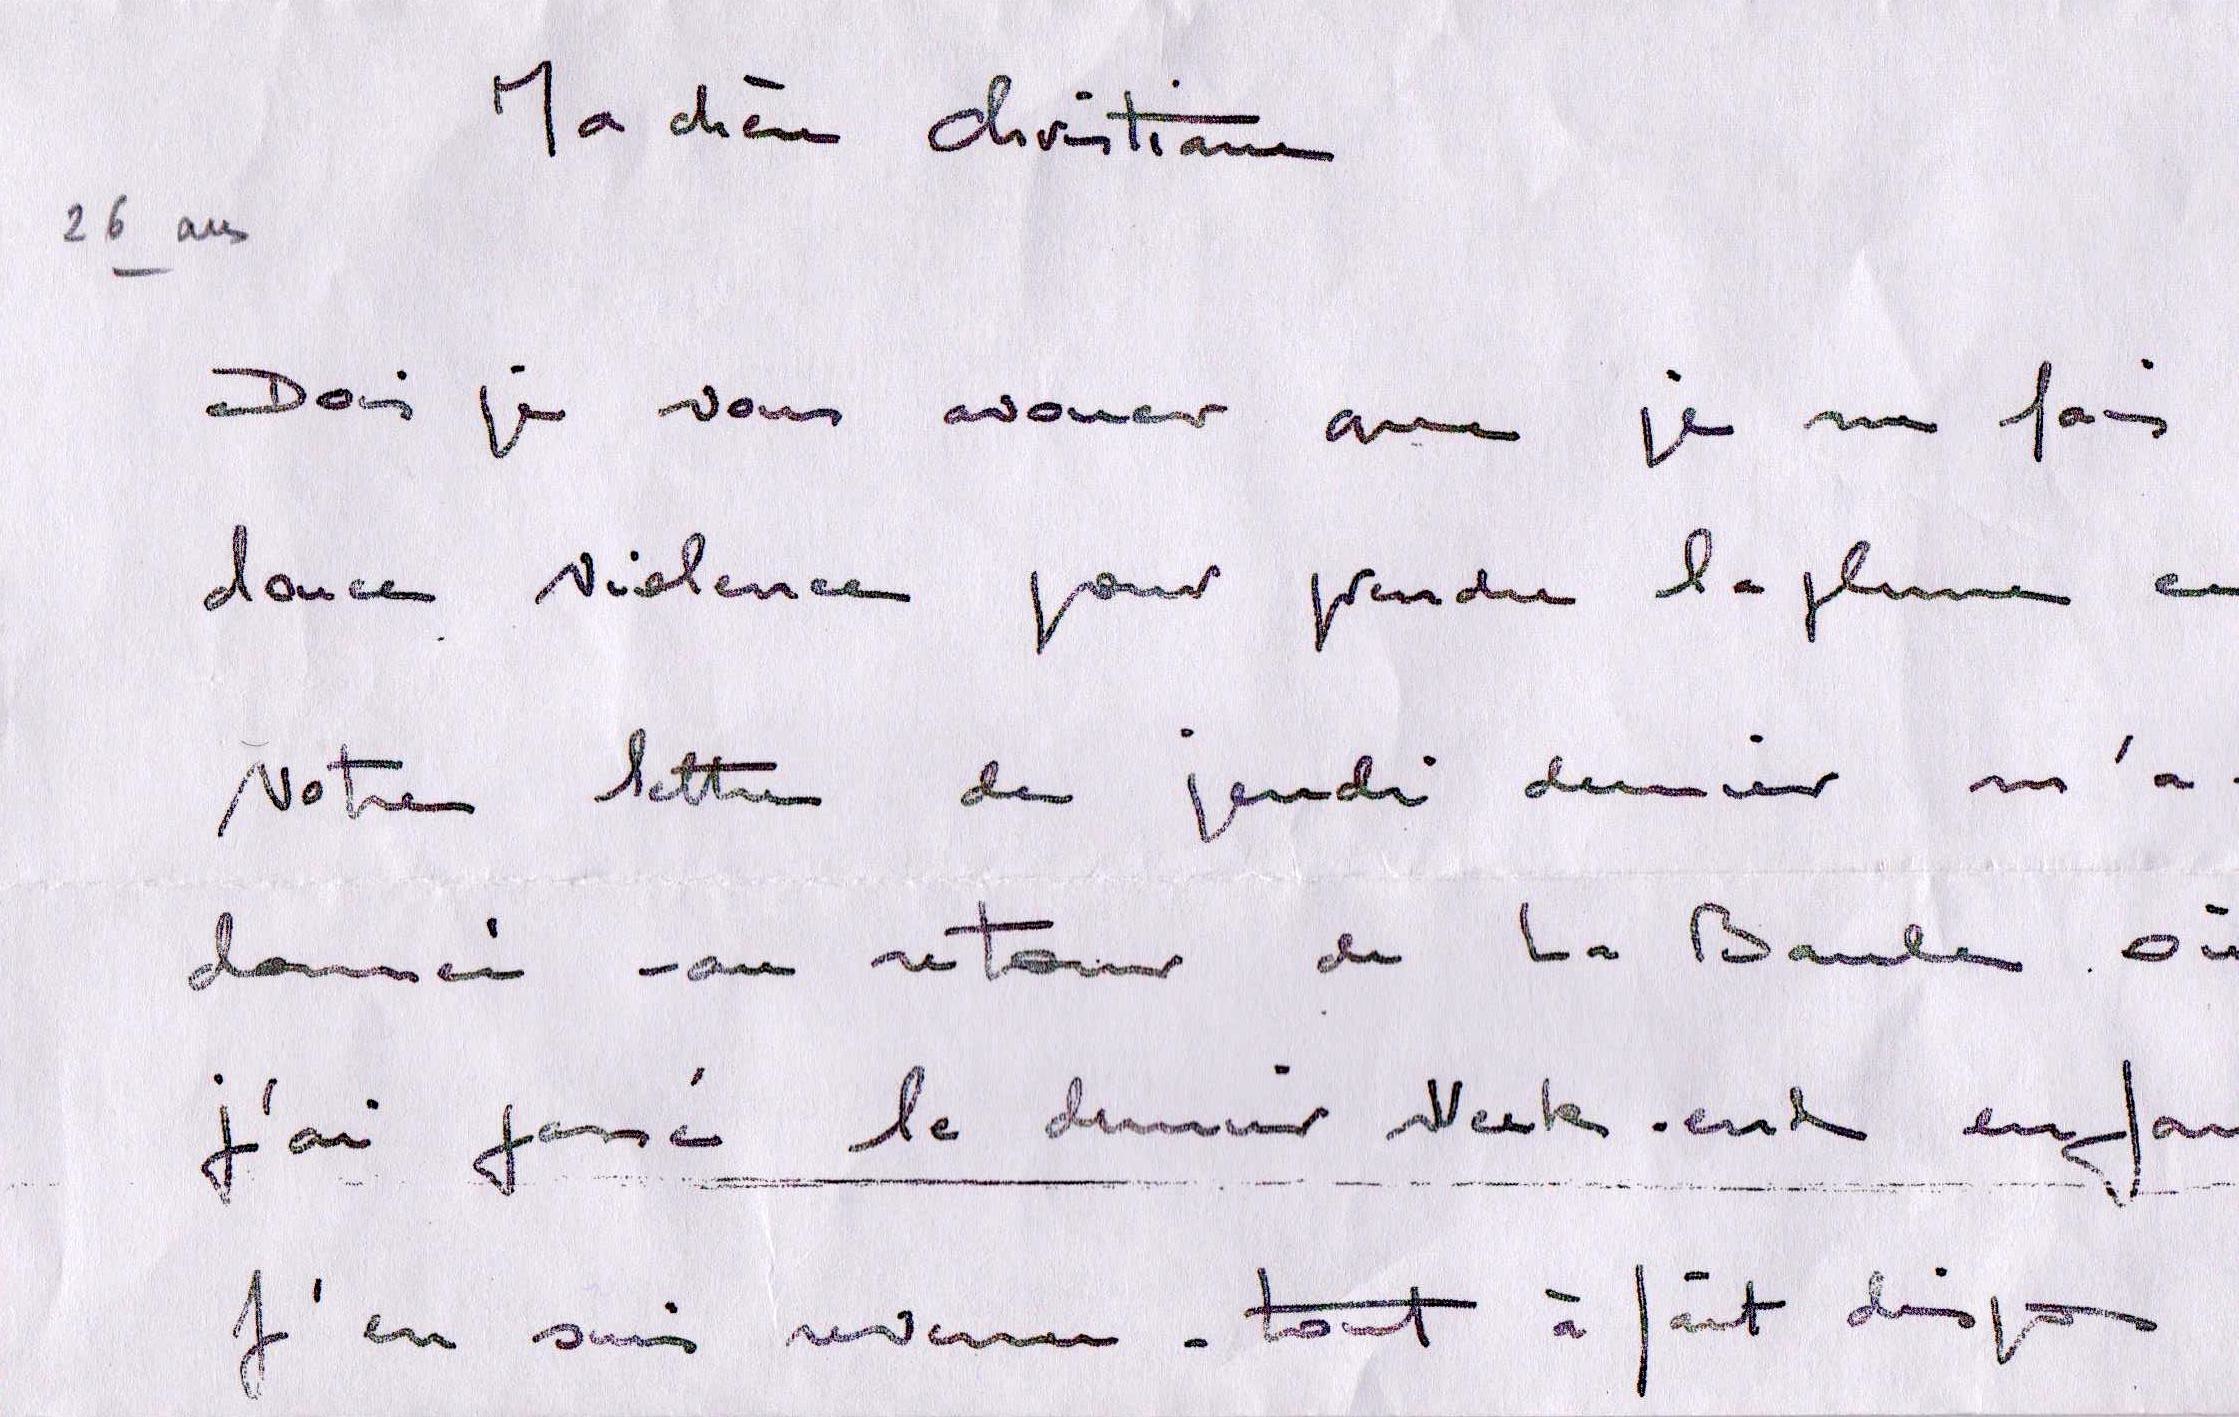 Ma chère Christiane
26 ans
Dois je vous avouer que je me fais
douce violence pour prendre la plume en
Votre lettre de jeudi dernier m'a
donné - au retour de La Baule où
j'ai passé le dernier Week-end
J'en suis revenue - tout à fait dispos